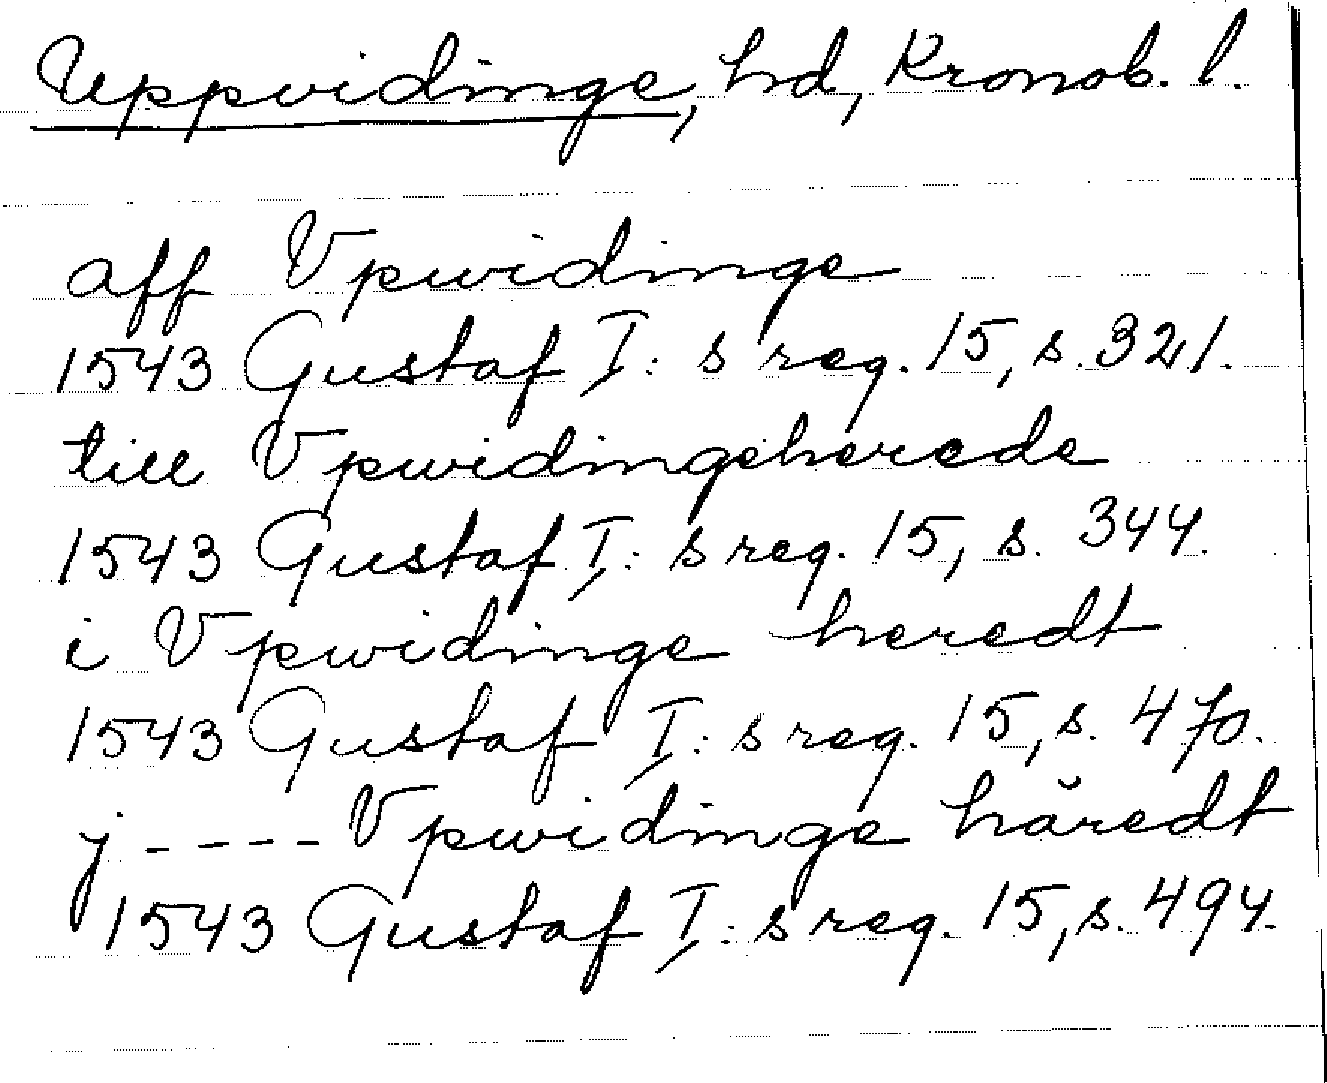 Uppvidinge, hd, Kronob. l.
aff Vpwidinge
1543 Gustaf I:s reg. 15, s. 321.
till Vpwidingeherede
1543 Gustaf I:s reg. 15, s. 344.
i Vpwidinge heredt
1543 Gustaf I:s reg. 15, s. 470.
j ---- Vpwidinge häredt
1543 Gustaf I:s reg. 15, s. 494.